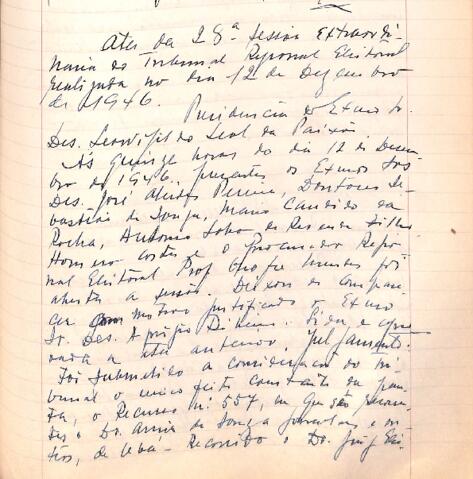 Ata da 28ª sessão Extraordi-
naria do Tribunal Regional Eleitoral
realizada no dia 12 de Dezembro
de 1946.
Presidencia do Exmo Sr.
Des. Leovigildo Leal da Paixão
Ás quinze horas do dia 12 de Dezem-
bro de 1946, presentes os Exmos Srs
Des. José Alcides Pereira, Doutores Se-
bastião de Souza, Mario Candido da
Rocha, Antonio Lobo de Resende Filho
Homero Costa e o Procurador Regio-
nal Eleitoral Prof. Onofre Mendes foi
aberta a sessão. Deixou de compare-
cer com motivo justificado o Exmo
Sr. Des. Aprigio Ribeiro. Lida e apro-
vada a ata anterior. Julgamento.
Foi submetido a consideração do tri-
bunal o unico feito constante da pau-
ta, o Recurso nº 557, em que são recorren-
tes o Dr. de Souza e ou-
tros, de Ubá - Recorrido o Dr. Juiz Elei-